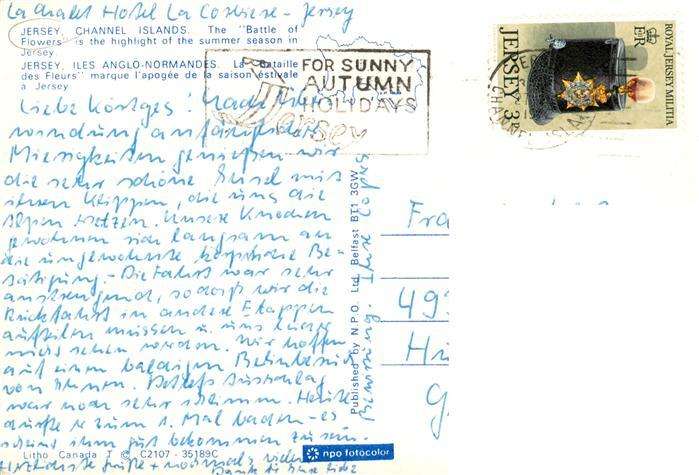 La Chalet Hotel La Corbiere - Jersey
JERSEY, CHANNEL ISLANDS. The "Battle of
Flowers" is the highlight of the summer season in
Jersey
JERSEY, ILES ANGLO-NORMANDES. La Bataille
des Fleurs" marque l'apogée de la saison estivale
a Jersey
FOR SUNNY
AUTUMN
HOLIDAYS
Jersey
ROYAL JERSEY MILITIA
ER
JERSEY 3P
CHANNEL ISLANDS
Liebe Köstges! Nach
windung anfänglicher
Miesigkeiten genießen wir
die sehr schöne Insel mit
ihren Klippen, die uns die
Alpen setzen. Unsere Knochen
gewöhnen sich langsam an
die ungewohnte körperliche Be-
tätigung. - Die Fahrt war sehr
anstrengend, so daß wir die
Rückfahrt in andere Etappen
aufteilen müssen u. uns länger
nicht sehen werden. Wir hoffen
auf einen baldigen
von Ihnen. Detlefs Ausschlag
war noch sehr schlimm. Heute
durfte er zum 1. Mal baden - es
scheint ihm gut bekommen zu sein.
Herzlichste Grüße + nochmals vielen
Dank für Ihre liebe
Ihre
Published by N.P.O. Ltd, Belfast BT1 3GW
Fra
49
Hi
G
Litho Canada T © C2107 - 35189C
npo fotocolor